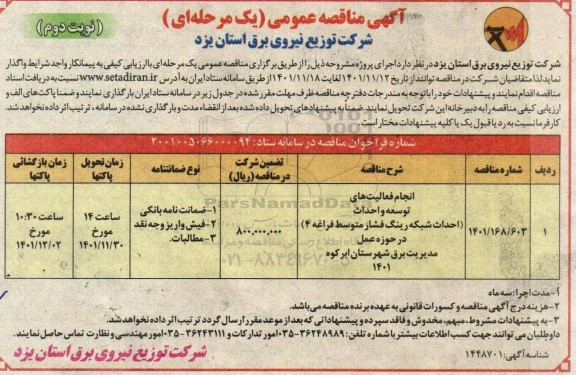 آگهی مناقصه عمومی (یک مرحله‌ای)
(نوبت دوم)
شرکت توزیع نیروی برق استان یزد
شرکت توزیع نیروی برق استان یزد در نظر دارد اجرای پروژه مشروحه ذیل را از طریق برگزاری مناقصه عمومی یک مرحله‌ای با ارزیابی کیفی به پیمانکار واجد شرایط واگذار
نماید لذا متقاضیان شرکت در مناقصه توانند از تاریخ ۱۴۰۱/۱۱/۱۲ لغایت ۱۴۰۱/۱۱/۱۸ از طریق سامانه ستاد ایران به آدرس www.setadiran.ir نسبت به دریافت اسناد
مناقصه اقدام نمایند و پیشنهادات خود را با توجه به مندرجات دفترچه مناقصه ظرف مهلت مقرر شده در جدول زیر در سامانه ستاد ایران بارگذاری نمایند و ضمنا پاکت‌های الف و
ارزیابی کیفی مناقصه را به دبیرخانه این شرکت تحویل نمایند. ضمناً به پیشنهادهای تحویل داده شده بعد از انقضاء مدت و بارگذاری نشده در سامانه، ترتیب اثر داده نخواهد شد.
کارفرما نسبت به رد یا قبول یک یا کلیه پیشنهادات مختار است.
شماره فراخوان مناقصه در سامانه ستاد: ۲۰۰۱۰۰۵۰۶۶۰۰۰۰۹۴
ردیف
شماره مناقصه
شرح مناقصه
تضمین شرکت در مناقصه (ریال)
نوع ضمانتنامه
زمان تحویل پاکتها
زمان بازگشائی پاکتها
۱
۱۴۰۱/۱۶۸/۶۰۳
انجام فعالیت‌های
توسعه و احداث
(احداث شبکه رینگ فشار متوسط فراغه ۴)
در حوزه عمل
مدیریت برق شهرستان ابرکوه
۱۴۰۱
۸۰۰,۰۰۰,۰۰۰
۱-ضمانت نامه بانکی
۲-فیش واریز وجه نقد
۳-مطالبات.
ساعت ۱۴
مورخ
۱۴۰۱/۱۱/۳۰
ساعت ۱۰:۳۰
مورخ
۱۴۰۱/۱۲/۰۲
۱-مدت اجرا: سه ماه
۲-هزینه درج آگهی مناقصه و کسورات قانونی به عهده برنده مناقصه می‌باشد.
۳-به پیشنهادات مشروط، مبهم، مخدوش و فاقد سپرده و پیشنهاداتی که بعد از موعد مقرر ارسال گردد ترتیب اثر داده نخواهد شد.
داوطلبان می توانند جهت کسب اطلاعات بیشتر با شماره تلفن: ۰۳۵-۳۶۲۴۸۹۸۹ امور تدارکات و ۰۳۵-۳۶۲۴۳۱۱۱ امور مهندسی و نظارت تماس حاصل نمایند.
شناسه آگهی: ۱۴۴۸۷۰۱
شرکت توزیع نیروی برق استان یزد